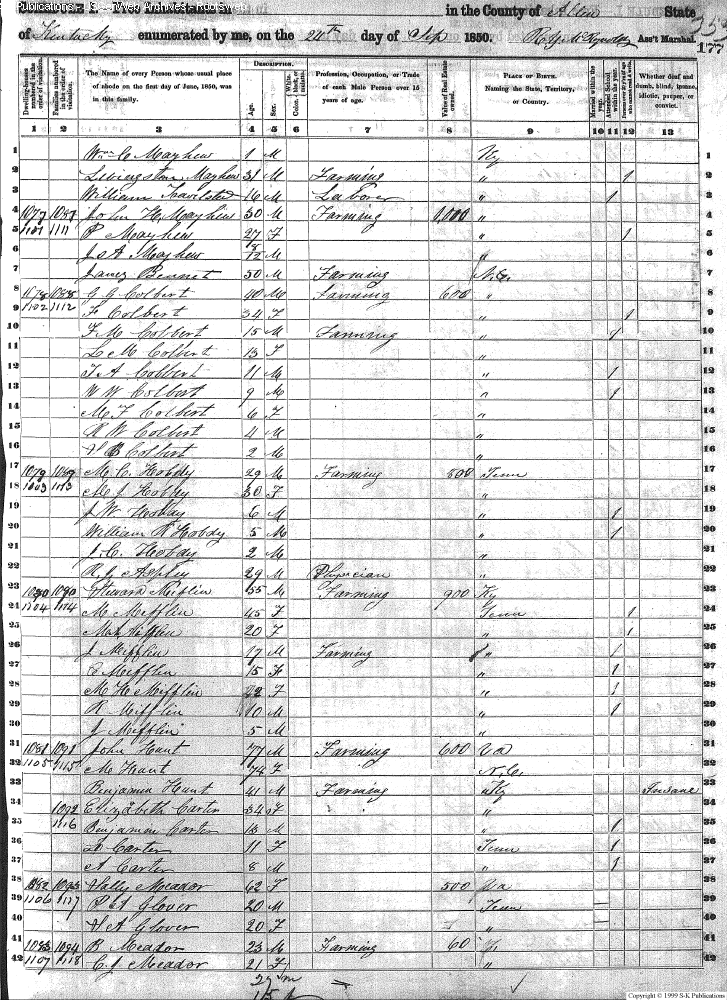 Publications - USGenWeb Archives - Rootsweb
in the County of Allen State
of Kentucky enumerated by me, on the 24th day of Sep 1850. Ass't Marshal.
177
DESCRIPTION.
Dwelling-houses numbered in the order of visitation.
Families numbered in the order of visitation.
The Name of every Person whose usual place of abode on the first day of June, 1850, was in this family.
Age.
Sex.
White, Color, black, or mulatto.
Profession, Occupation, or Trade of each Male Person over 15 years of age.
Value of Real Estate owned.
PLACE OF BIRTH. Naming the State, Territory, or Country.
Married within the year.
Attended School within the year.
Whether deaf and dumb, blind, insane, idiotic, pauper, or convict.
1 2 3 4 5 6 7 8 9 10 11 12 13
1 Wm C Mayhew 1 M Ky 1
2 Livingston Mayhew 31 M Farming " 1 2
3 William 16 M Laborer " 1 3
4 1077 1087 John H Mayhew 30 M Farming 1,000 " 4
5 1101 1111 P Mayhew 27 F " 1 5
6 J A Mayhew 8/12 M " 6
7 Bennet 50 M Farming N.C. 7
8 1078 1088 G G Colbert 40 M Farming 600 " 8
9 1102 1112 F Colbert 34 F " 1 9
10 F M Colbert 15 M Farming " 1 10
11 L M Colbert 13 F " 11
12 T A Colbert 11 M " 1 12
13 W W Colbert 9 M " 1 13
14 M F Colbert 6 F " 14
15 R W Colbert 4 M " 15
16 H B Colbert 2 M " 16
17 1079 1089 M C Hobdy 29 M Farming 800 Tenn 17
18 1103 1113 M J Hobdy 30 F " 18
19 J W Hobdy 6 M " 1 19
20 William R Hobdy 5 M " 1 20
21 J C Hobdy 2 M " 21
22 29 M Physician " 22
23 1080 1090 Mifflin 55 M Farming 900 Ky 23
24 1104 1114 M Mifflin 45 F Tenn 1 24
25 Mifflin 20 F " 1 25
26 J Mifflin 17 M Farming " 1 26
27 Mifflin 15 " 1 27
28 M H Mifflin 22 F " 1 28
29 R Mifflin 10 M " 1 29
30 J Mifflin 5 M " 30
31 1081 1091 John Hunt 77 M Farming 600 Va 31
32 1105 1115 M Hunt 74 F N.C. 32
33 Benjamin Hunt 41 M Farming Ky Insane 33
34 1092 Elizabeth Carter 34 F " 34
35 1116 Benjamin Carter 13 M " 1 35
36 Carter 11 F Tenn 1 36
37 A Carter 8 M " 1 37
38 1082 1093 Meador 62 F 500 Va 38
39 1106 1117 Glover 20 M Tenn 39
40 H A Glover 20 F " 40
41 1083 1094 B Meador 23 M Farming 60 41
42 1107 1118 C J Meador 21 F " 42
Copyright © 1999 S-K Publications